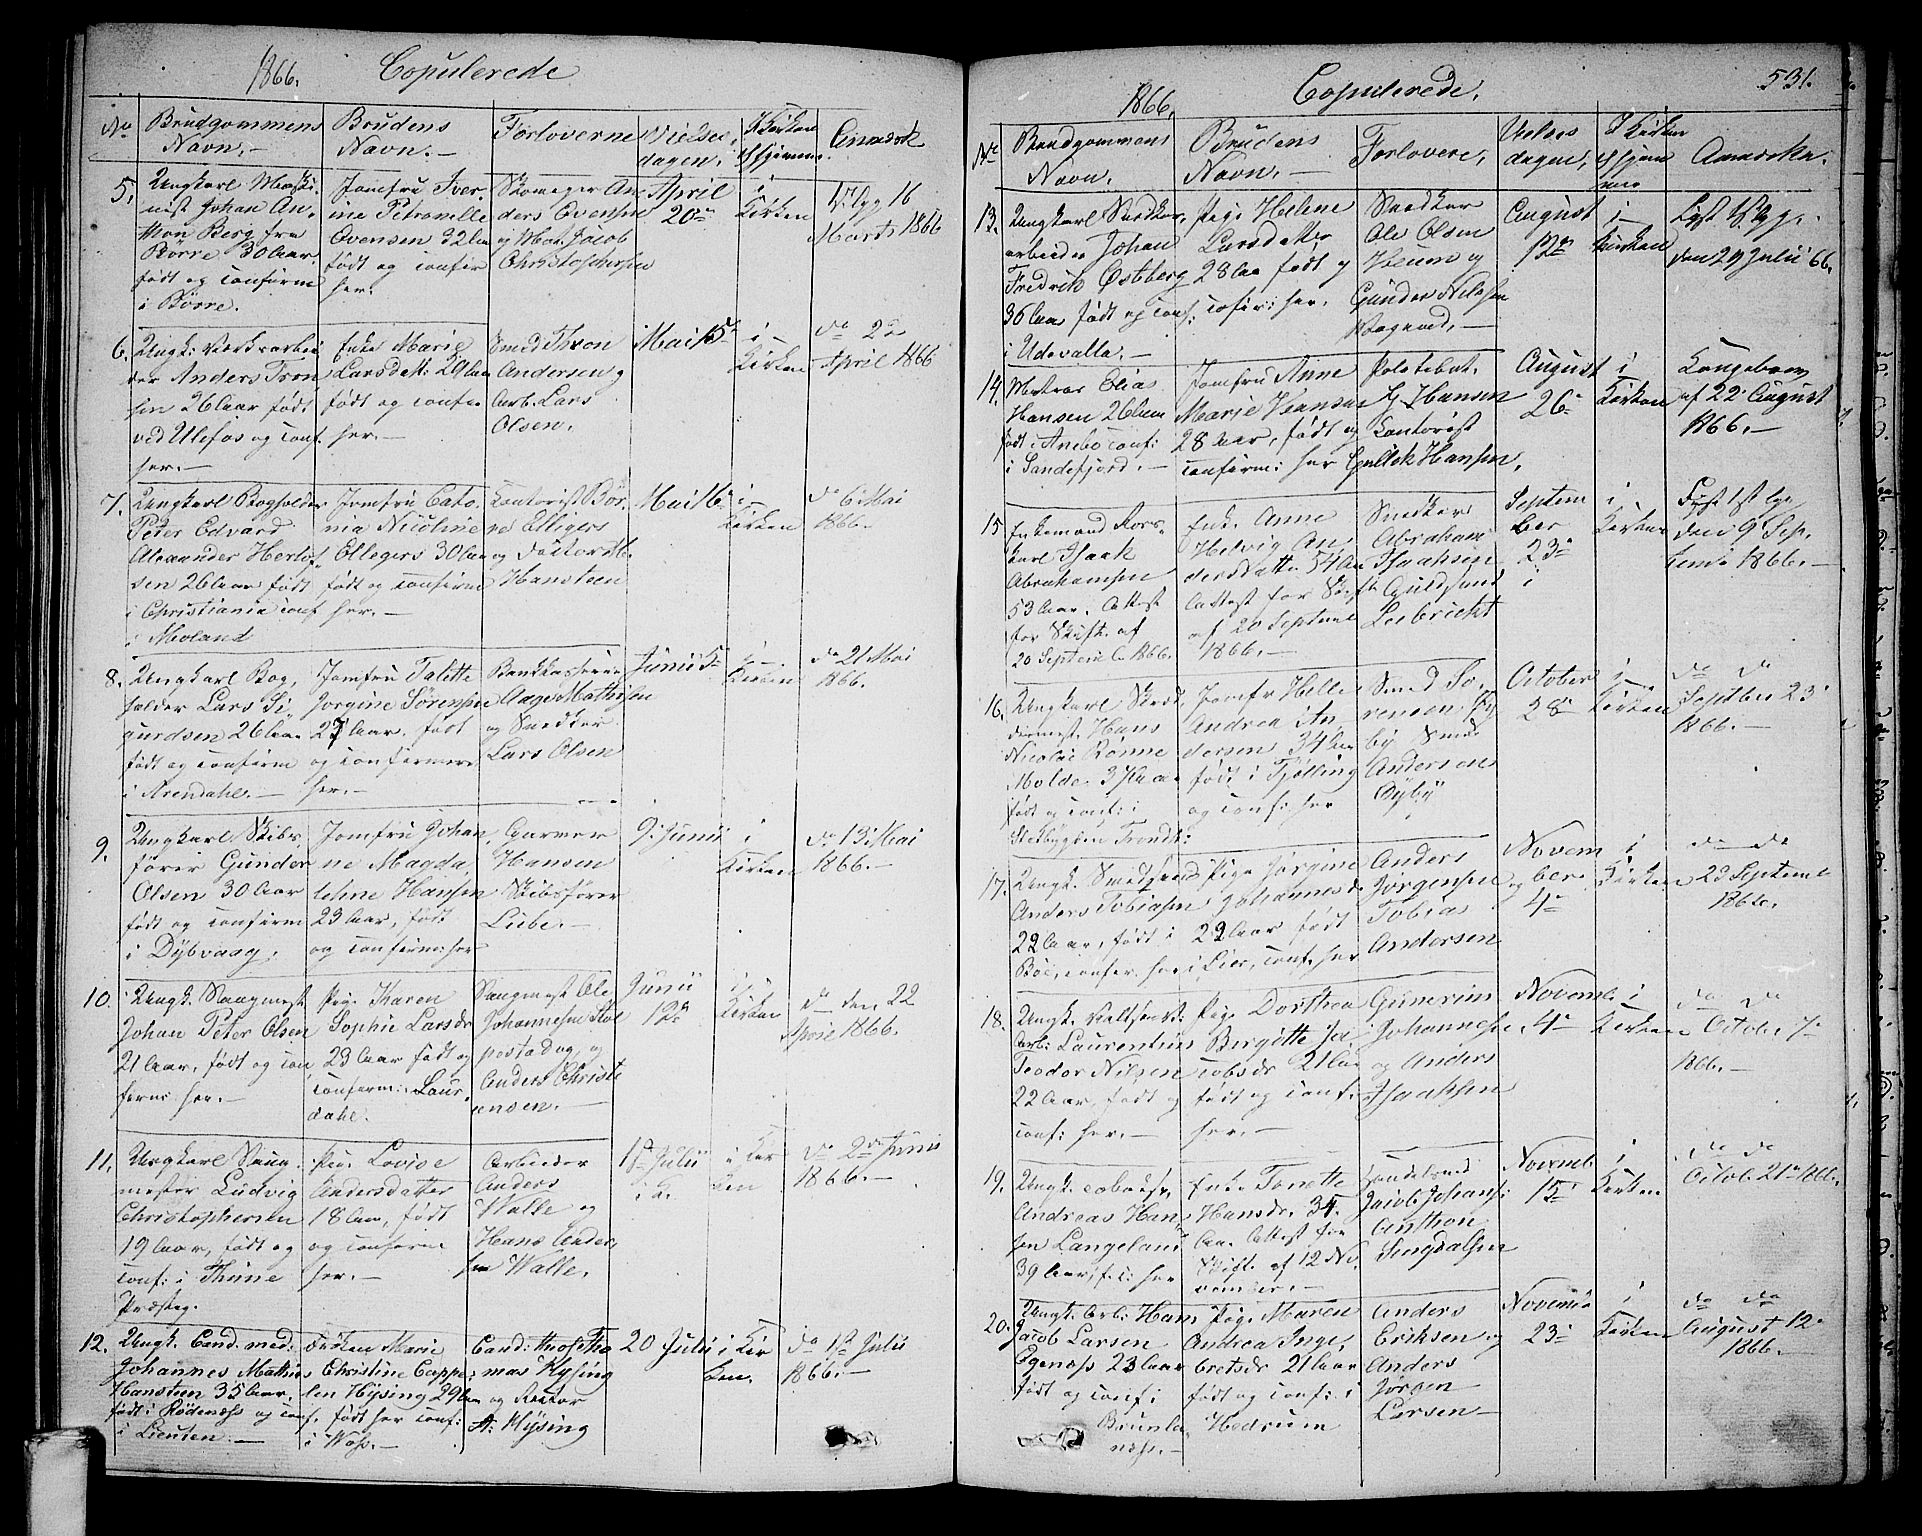 1866. Copulerede
No
Brudgommens
Navn.
Brudens
Navn.
Forloverne
Vielses
dagen.
I Kirken
Anmærk
5.
Ungkarl Maski
nist Johan An
ton Berg fra
Børre 30 Aar.
født og confirm
i Børre.
Jomfru Iver
ine Petronille
Ovensen 32 Aar
født og confir
her.
An
ders Ovensen
og Mat. Jacob
Christophersen
April
20de
i
Kirken
16
Marts 1866
6.
Ungk: Værksarbei
der Anders Tron
sen 26 Aar født
ved Ulefos og conf.
her.
Enke Marie
Larsdatt: 29 Aar
født og confir
her.
Smed Thron
Andersen og
Arb. Lars
Olsen.
Mai
i
Kirken
do 22
April 1866
7.
Ungkarl Bogholder
Peter Edvard
Alexander Hertof
sen 26 Aar født
i Christiania conf
i Moland
Jomfru Cato
nia Nicoline
Ellegers 30 Aar
født og confirm
her.
Contorist Bør
re Elligers
og Factor M.
Hansteen
Mai 16
i
Kirken
do 6 Mai
1866.
8.
Ungkarl Bog,
holder Lars Si
gurdsen 26 Aar
født og confirm
i Arendahl.
Jomfru Talette
Jorgine Sørensen
27 Aar. født
og confirmere
her.
Bankkasserer
Aage Mathesen
og Snedker
Lars Olsen
Junii 5
i
Kirken
do 21 Mai
1866.
9.
Ungkarl Skibs
fører Gunder
Olsen 30 Aar
født og confirm
i Dybvaag.
Jomfru Johan
ne Magda
lehne Hansen
23 Aar, født
og confirm: her
Garver
Hansen
Skibsfører
Lube.
9 Junii
i
Kirken
do 13 Mai
1866.
10.
Ungk. Saugmest
Johan Peter Olsen
21 Aar, født og con
ferm her.
Pige Karen
Sophie Larsdr
23 Aar født og
conferm: Laur
dahl.
Saugmest Ole
Johannesen
og
Anders Christi
ansen.
Junii
12te
i
Kirken
do den 22
April 1866.
11.
Ungkarl Saug
mester Ludvig
Christophersen
19 Aar, født og
conf: i Thune
Præsteg.
Pige Lovise
Andersdatter
18 Aar, født
og conferm
her.
Arbeider
Anders
Walle og
Hans Ander
sen Walle.
1ste Julii
i Kir
ken
do 2den Junii
1866.
12.
Ungk. Cand. med:
Johannes Mathias
Hansteen 35 Aar,
født i Rødenæs og conf
i Lieuten.
Frøken Marie
Christine Cappe
len Hysing 29 Aar
født her conf:
i Wos.
Cand: theol Tho
mas Hysing
og Rector
A: Hysing
20 Julii
i Kir
ken.
do 1st Julii
1866.
1866.
Copulerede.
531.
No
Brudgommens
Navn.
Brudens
Navn.
Forlovere,
Vielses
dagen,
I Kirken
Anmærkn.
13.
Ungkarl Snedker
arbeider Johan
Fredrik Østberg
36 Aar født og conf:
i Udevalla.
Pige Helene
Larsdatter
28 Aar født og
confir: her.
Snedker
Ole Olsen
og
Gunder Nilssen
August
12te
i
Kirken
Lyst
den 29 Julii 66.
14.
Matros Elias
Hansen 26 Aar
født i Anebo conf:
i Sandefjord.
Jomfru Anne
Marie Hansen
28 Aar, født og
conferm: her
Politibet.
H. Hansen
Kontorist
Gullik Hansen.
August
26
i
Kirken
Kongebrev
af 22 August
1866.
15
Enkemand Kors
karl Isaak
Abrahamsen
53 Aar. Attest
for Skift. af
20 Septemb. 1866.
Enke Anne
Helvig An
dersdatter 54 Aar
Attest for Skifte
af 20 Septemb
1866.
Snedker
Abraham
Isaaksen
Guldsmed
Leibricht
Septem
ber
23
i
i
Kirken
Lyst 1st
den 9 Sep
temb 1866.
16.
Ungkarl
Hans
Nicolai Rønne
Molde 3 Aar
født og conf:
Stadsbygden Trondh:
Jomfr Helle
Andrea An
dersen 34 Aar
født i Tjølling
og conf: her
Smed So
rensen
by Smed
Andersen
Dyby
October
28
i
Kirken
do do
Septber 23
1866.
17.
Ungk. Smedsvend
Anders Tobiasen
22 Aar, født i
Boe, confer. her
Pige Jørgine
Johannesdr
22 Aar født
i Lier, conf. her
Anders
Jørgensen
og
Tobias
Andersen
Novem
ber
4
i
Kirken
do do
23 Septemb
1866.
18.
Ungk.
Arb: Laurentius
Teodor Nilsen
22 Aar, født og
conf: her.
Pige Dorthea
Birgitte Ja
cobsdr 21 Aar
født og conf.
her.
Gunerius
Johannesen
og Anders
Isaaksen
Novemb.
4
i
Kirken
do do
Octob. 7
1866.
19.
Ungk.
Andreas Han
sen Langeland
39 Aar, f. c: her
Enke Tonette
Hansdr. 35.
Aar Attest for
Skift. af 12 No
vember.
Handelsmd
Jacob Johans:
Anthon
Novemb
15
i
Kirken
do do
Octob. 21 1866.
20.
Ungk. Arb: Hans
Jacob Larsen
Egenæss 23 Aar
født og conf i
Brunla
næs.
Pige Maren
Andrea Inge
bretsdr 21 Aar
født og conf: i
Hedrum
Anders
Eriksen og
Anders
Jørgen
Larsen
Novemb
23
i
Kirken
do do
August 12
1866.